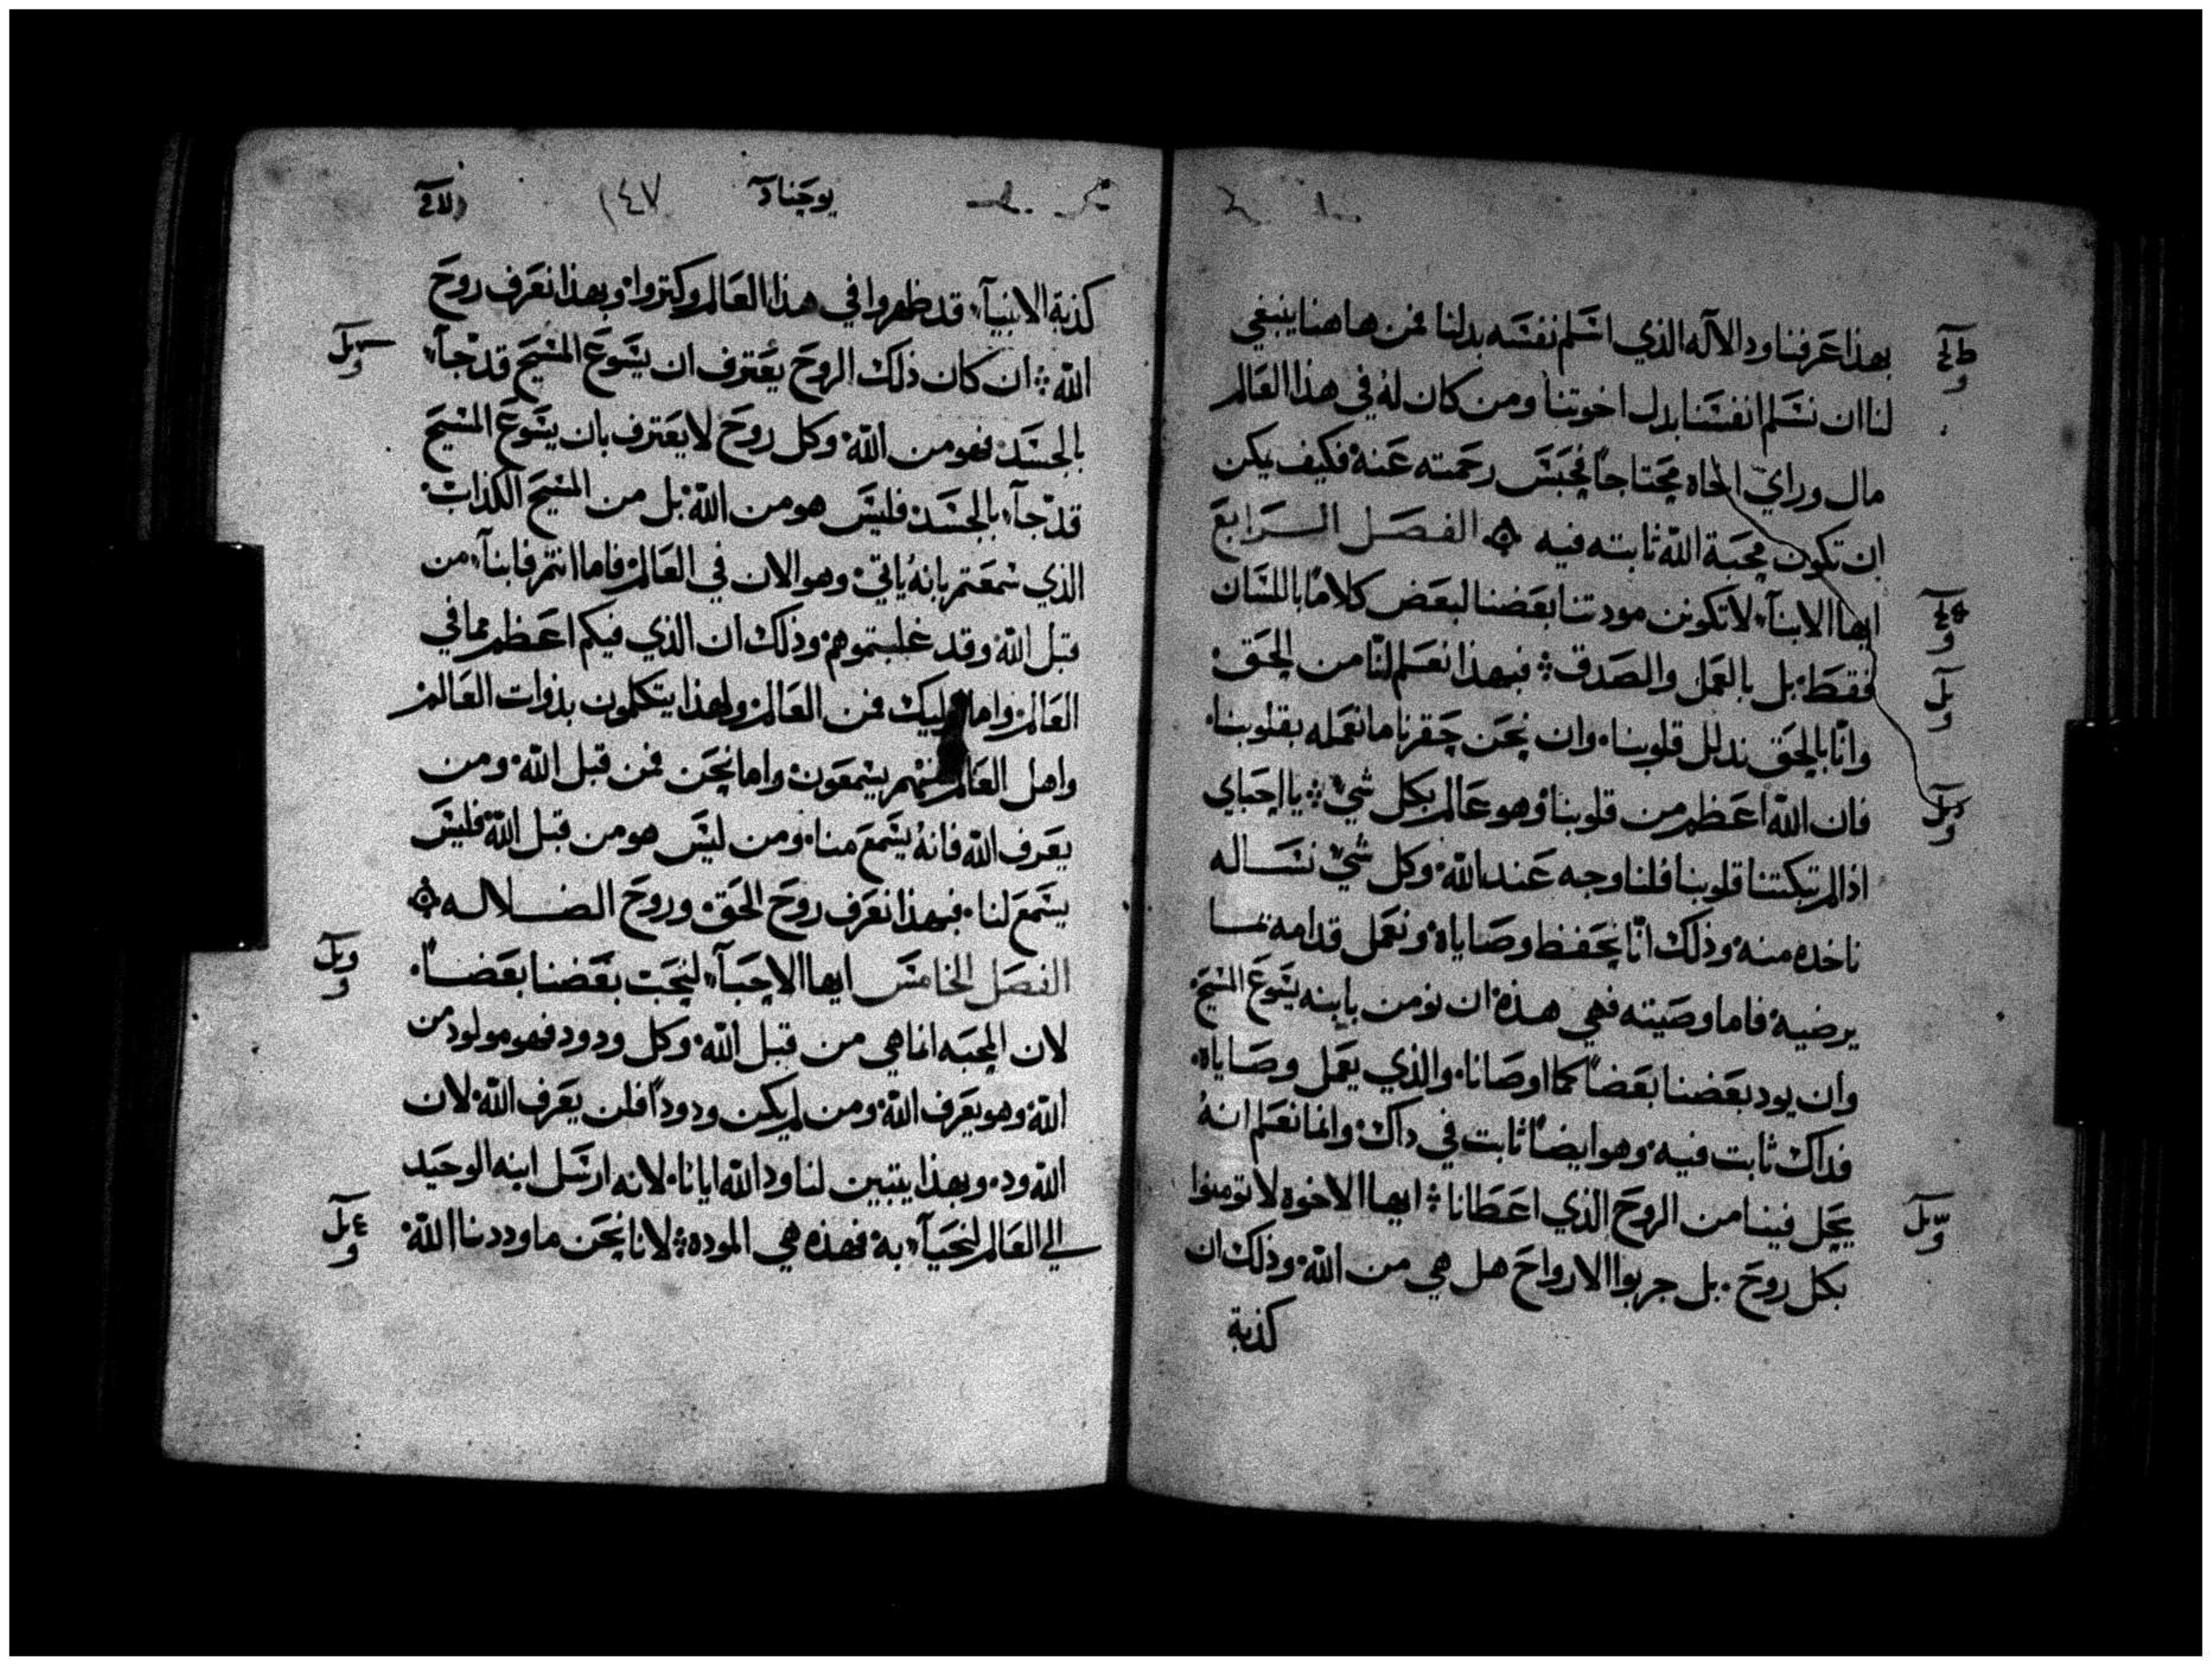 بهذا عرفنا ود الاله الذي اسلم نفسه بدلنا فمن هاهنا ينبغي
لنا ان نسلم انفسنا بدل اخوتنا ومن كان له في هذا العالم
مال وراي اخاه محتاجا فحبس رحمته عنه فكيف يكن
ان تكون محبة الله ثابته فيه ۞ الفصل الرابع
ايها الابنآء لا تكونن مودتنا بعضنا لبعض كلاما باللسان
فقط بل بالعمل والصدق فبهذا نعلم انّا من الحق
وانّا بالحق ندلل قلوبنا وان نحن حقرنا ما نعمله بقلوبنا
فان الله اعظم من قلوبنا وهو عالم بكل شي يا احباي
اذا لم تبكتنا قلوبنا فلنا وجه عند الله وكل شي نساله
ناخده منه وذلك انّا نحفظ وصاياه ونعمل قدامه بما
يرضيه فاما وصيته فهي هذه ان نومن بابنه يسوع المسيح
وان يود بعضنا بعضاً كما اوصانا والذي يعمل وصاياه
فداك ثابت فيه وهو ايضاً ثابت في داك وانما نعلم انه
يحل فينا من الروح الذي اعطانا ايها الاخوه لا تومنوا
بكل روح بل جربوا الارواح هل هي من الله وذلك ان
كذبة
يوحنا ١٤٧
كذبة الانبيآء قد ظهروا في هذا العالم وكتروا وبهذا نعرف روح
الله ان كان ذلك الروح يعترف ان يسوع المسيح قد جآء
بالجسد فهو من الله وكل روح لا يعترف بان يسوع المسيح
قد جآء بالجسد فليس هو من الله بل من المسيح الكذاب
الذي سمعتم بانه ياتي وهو الان في العالم فاما انتم فابنآء من
قبل الله وقد غلبتموهم وذلك ان الذي فيكم اعظم مما في
العالم واما اوليك فمن العالم ولهذا يتكلمون بذوات العالم
واهل العالم منهم يسمعون واما نحن فمن قبل الله ومن
يعرف الله فانه يسمع منا ومن ليس هو من قبل الله فليس
يسمع لنا فبهذا نعرف روح الحق وروح الضلاله ۞
الفصل الخامس ايها الاحبآء لنحب بعضنا بعضاً
لان المحبه انما هي من قبل الله وكل ودود فهو مولود من
الله وهو يعرف الله ومن لم يكن ودوداً فلن يعرف الله لان
الله ود وبهذا يتبين لنا ود الله ايانا لانه ارسل ابنه الوحيد
الي العالم لنحيآء به فهذه هي الموده لانا نحن ما وددنا الله